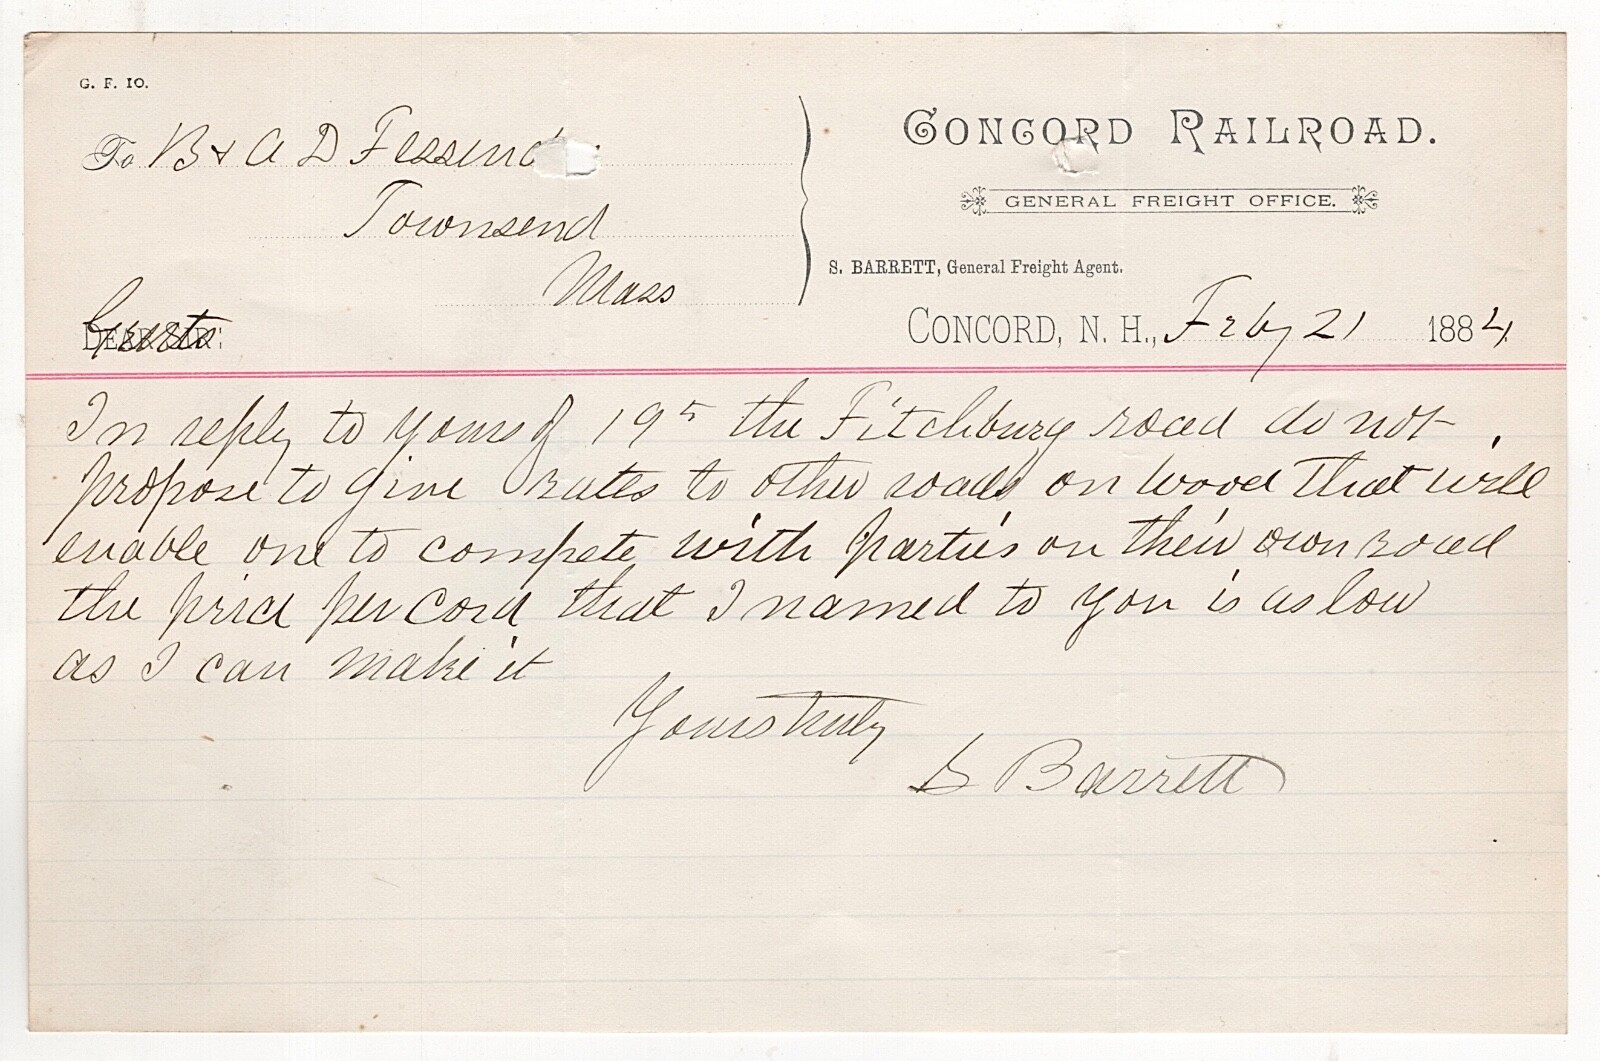 G. F. 10.
To B & A D Fessend
Townsend
Mass
CONCORD RAILROAD.
GENERAL FREIGHT OFFICE.
S. BARRETT, General Freight Agent.
CONCORD, N. H., Feby 21 1884
DEAR SIR: Gents
In reply to yours of 19th the Fitchburg road do not
propose to give rates to other roads on wood that will
enable one to compete with parties on their own road
the price per cord that I named to you is as low
as I can make it
Yours truly
S Barrett